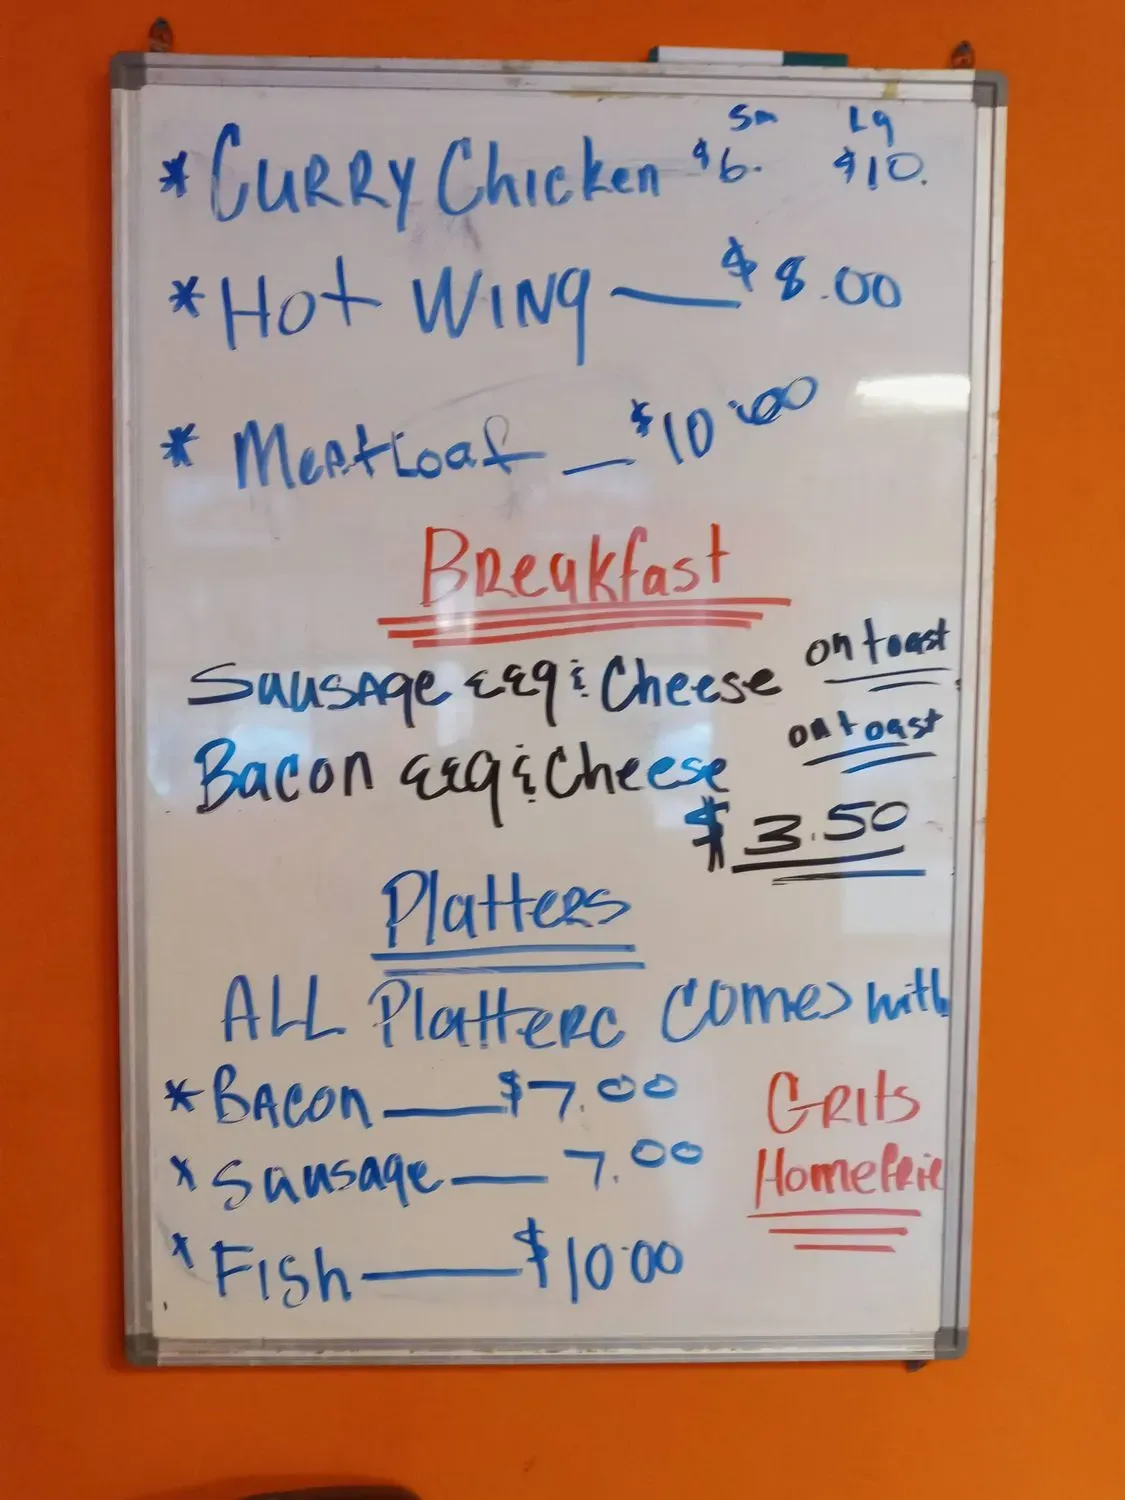 Sm Lg
* CURRY Chicken $6. $10.
* Hot WING — $8.00
* Meatloaf — $10.00
Breakfast
Sausage egg & Cheese on toast
Bacon egg & Cheese on toast
$3.50
Platters
ALL Platterc comes with
* BACON — $7.00 GRIts
* Sausage — 7.00 Homefrie
* Fish — $10.00